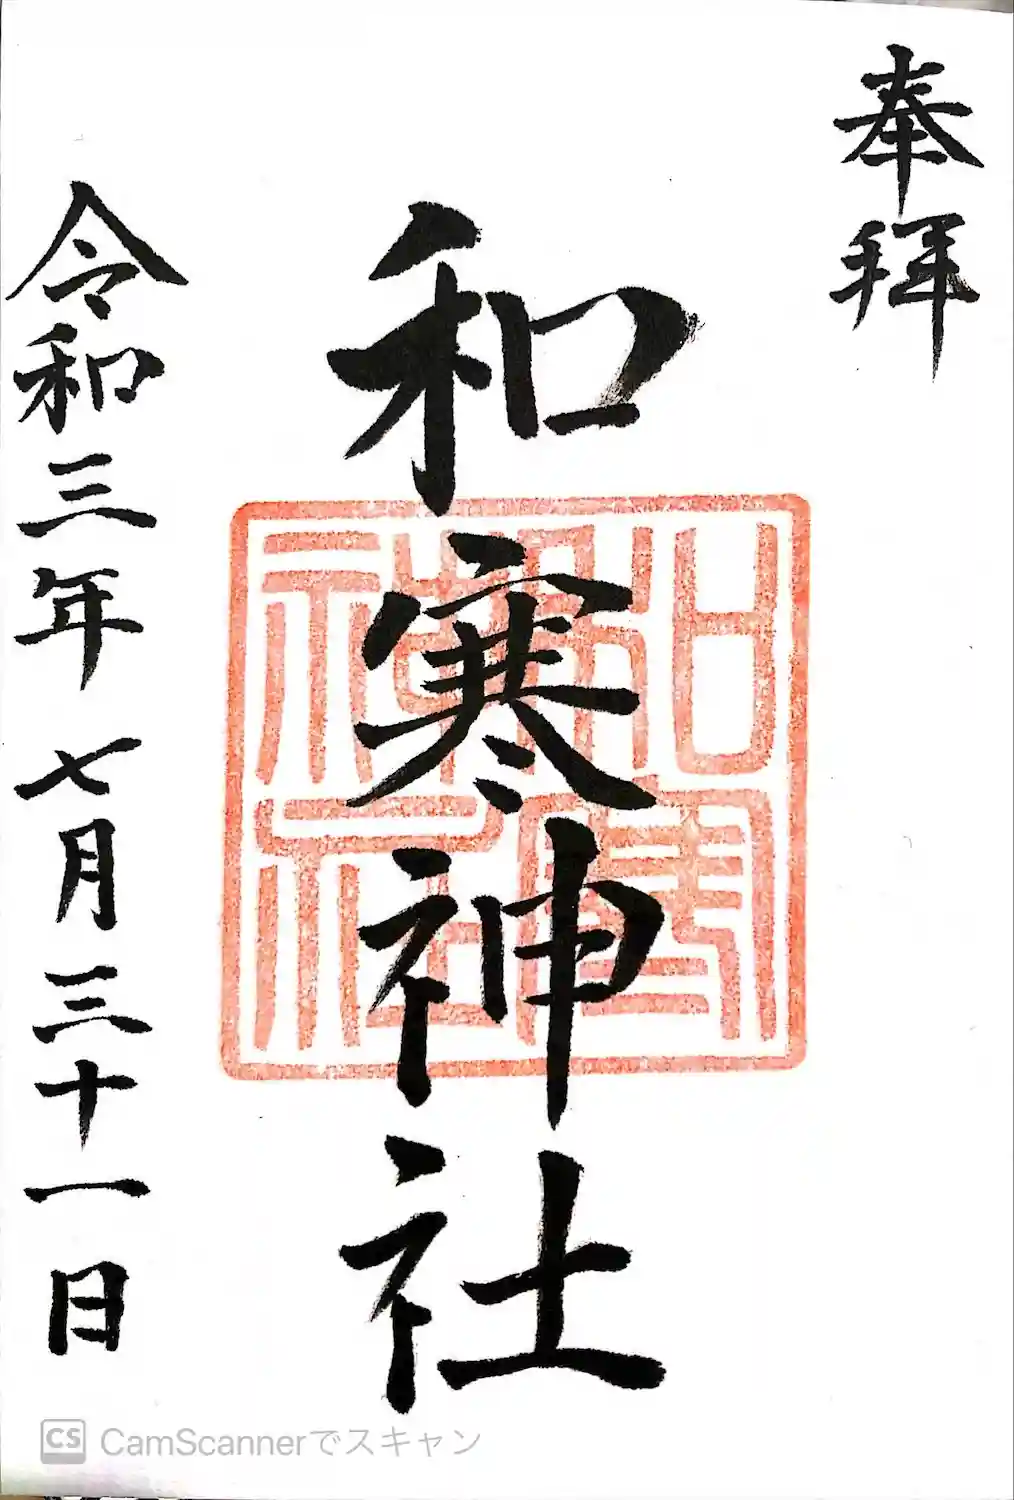 奉拝
和寒神社
和寒神社
令和三年七月三十一日
CS CamScannerでスキャン